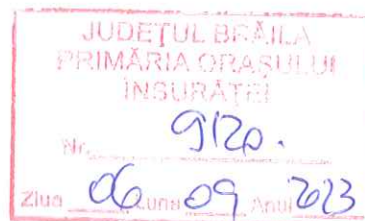 JUDEȚUL BRĂILA
PRIMĂRIA ORAȘULUI
ÎNSURĂȚEI
Nr. 9120.
Ziua 06 Luna 09 Anul 2023